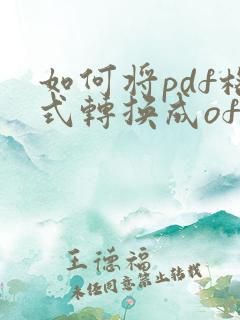 如何将pdf格
式轉换成of
王德福
未经同意禁止转载